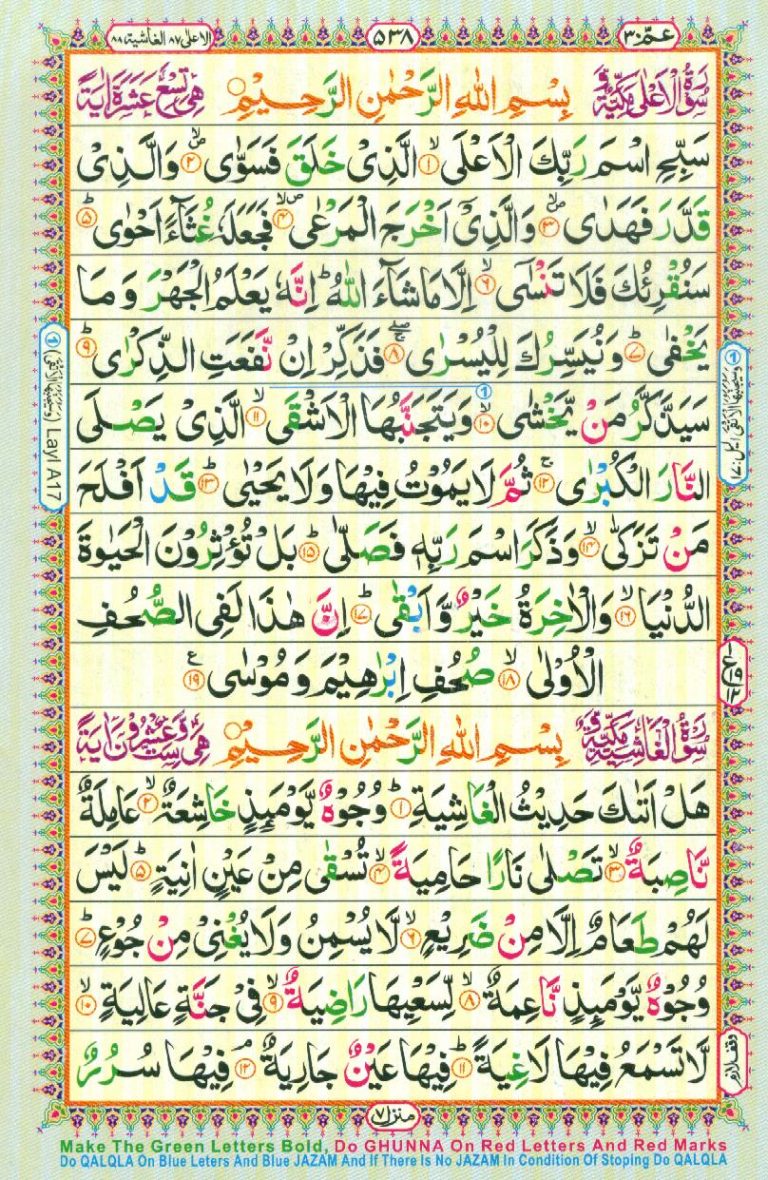 عمّ ٣٠
٥٣٨
الاعلى ٨٧ الغاشية ٨٨
سُوْرَةُ الْاَعْلٰى مَكِّيَّةٌ وَّ بِسْمِ اللهِ الرَّحْمٰنِ الرَّحِيْمِ هِيَ تِسْعَ عَشَرَةَ اٰيَةً
سَبِّحِ اسْمَ رَبِّكَ الْاَعْلَى ۙ﴿١﴾ الَّذِىْ خَلَقَ فَسَوّٰى ۙ﴿٢﴾ وَالَّذِىْ
قَدَّرَ فَهَدٰى ۙ﴿٣﴾ وَالَّذِىْۤ اَخْرَجَ الْمَرْعٰى ۙ﴿٤﴾ فَجَعَلَهٗ غُثَآءً اَحْوٰى ؕ﴿٥﴾
سَنُقْرِئُكَ فَلَا تَنْسٰٓى ۙ﴿٦﴾ اِلَّا مَا شَآءَ اللّٰهُ ؕ اِنَّهٗ يَعْلَمُ الْجَهْرَ وَ مَا
يَخْفٰى ؕ﴿٧﴾ وَنُيَسِّرُكَ لِلْيُسْرٰى ۚۖ﴿٨﴾ فَذَكِّرْ اِنْ نَّفَعَتِ الذِّكْرٰى ؕ﴿٩﴾
سَيَذَّكَّرُ مَنْ يَّخْشٰى ۙ﴿١٠﴾ وَيَتَجَنَّبُهَا الْاَشْقَى ۙ﴿١١﴾ الَّذِىْ يَصْلَى
النَّارَ الْكُبْرٰى ۚ﴿١٢﴾ ثُمَّ لَا يَمُوْتُ فِيْهَا وَلَا يَحْيٰى ؕ﴿١٣﴾ قَدْ اَفْلَحَ
مَنْ تَزَكّٰى ۙ﴿١٤﴾ وَذَكَرَ اسْمَ رَبِّهٖ فَصَلّٰى ؕ﴿١٥﴾ بَلْ تُؤْثِرُوْنَ الْحَيٰوةَ
الدُّنْيَا ۖ﴿١٦﴾ وَالْاٰخِرَةُ خَيْرٌ وَّ اَبْقٰى ؕ﴿١٧﴾ اِنَّ هٰذَا لَفِى الصُّحُفِ
الْاُوْلٰى ۙ﴿١٨﴾ صُحُفِ اِبْرٰهِيْمَ وَمُوْسٰى ﴿١٩﴾
سُوْرَةُ الْغَاشِيَةِ مَكِّيَّةٌ وَّ بِسْمِ اللهِ الرَّحْمٰنِ الرَّحِيْمِ هِيَ سِتٌّ وَّعِشْرُوْنَ اٰيَةً
هَلْ اَتٰىكَ حَدِيْثُ الْغَاشِيَةِ ؕ﴿١﴾ وُجُوْهٌ يَّوْمَئِذٍ خَاشِعَةٌ ۙ﴿٢﴾ عَامِلَةٌ
نَّاصِبَةٌ ۙ﴿٣﴾ تَصْلٰى نَارًا حَامِيَةً ۙ﴿٤﴾ تُسْقٰى مِنْ عَيْنٍ اٰنِيَةٍ ؕ﴿٥﴾ لَيْسَ
لَهُمْ طَعَامٌ اِلَّا مِنْ ضَرِيْعٍ ۙ﴿٦﴾ لَّا يُسْمِنُ وَلَا يُغْنِىْ مِنْ جُوْعٍ ؕ﴿٧﴾
وُجُوْهٌ يَّوْمَئِذٍ نَّاعِمَةٌ ۙ﴿٨﴾ لِّسَعْيِهَا رَاضِيَةٌ ۙ﴿٩﴾ فِىْ جَنَّةٍ عَالِيَةٍ ۙ﴿١٠﴾
لَّا تَسْمَعُ فِيْهَا لَاغِيَةً ؕ﴿١١﴾ فِيْهَا عَيْنٌ جَارِيَةٌ ۘ﴿١٢﴾ فِيْهَا سُرُرٌ
Layl A17
وقف لازم
منزل ٧
Make The Green Letters Bold, Do GHUNNA On Red Letters And Red Marks
Do QALQLA On Blue Leters And Blue JAZAM And If There Is No JAZAM In Condition Of Stoping Do QALQLA